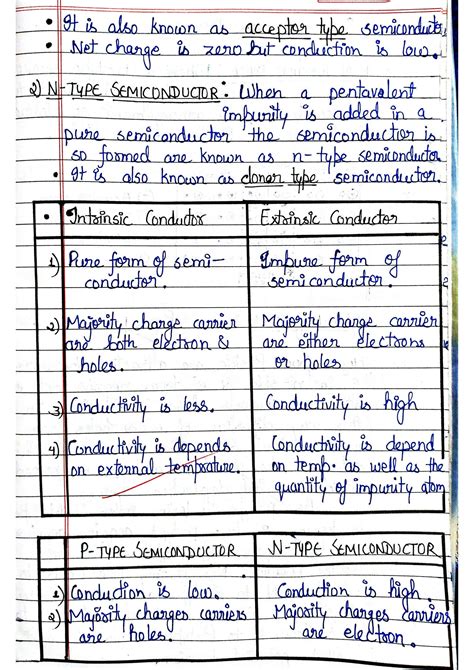 • It is also known as acceptor type semiconductor
• Net charge is zero but conduction is low.
2) N-TYPE SEMICONDUCTOR: When a pentavalent
impurity is added in a
pure semiconductor the semiconductior is
so formed are known as n-type semiconductor
• It is also known as cloner type semiconductor.
• Intrinsic Conductor
Extrinsic Conductor
1) Pure form of semi-
conductor.
Impure form of
semiconductor.
2) Majority charge carrier
are both electron &
holes.
Majority charge carrier
are either electrons
or holes
3) Conductivity is less.
Conductivity is high
4) Conductivity is depends
on external temprature.
Conductivity is depend
on temp. as well as the
quantity of impurity atom
P-TYPE SEMICONDUCTOR
N-TYPE SEMICONDUCTOR
1) Conduction is low.
Conduction is high.
2) Majority charges carriers
are holes.
Majority charges carriers
are electron.